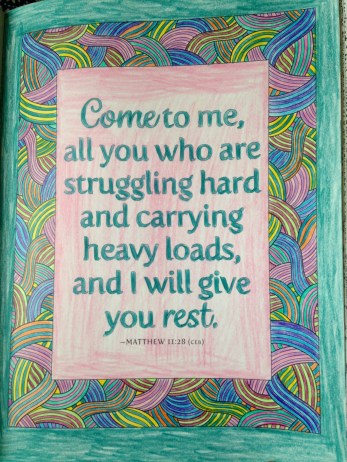 Come to me,
all you who are
struggling hard
and carrying
heavy loads,
and I will give
you rest.
—MATTHEW 11:28 (CEB)